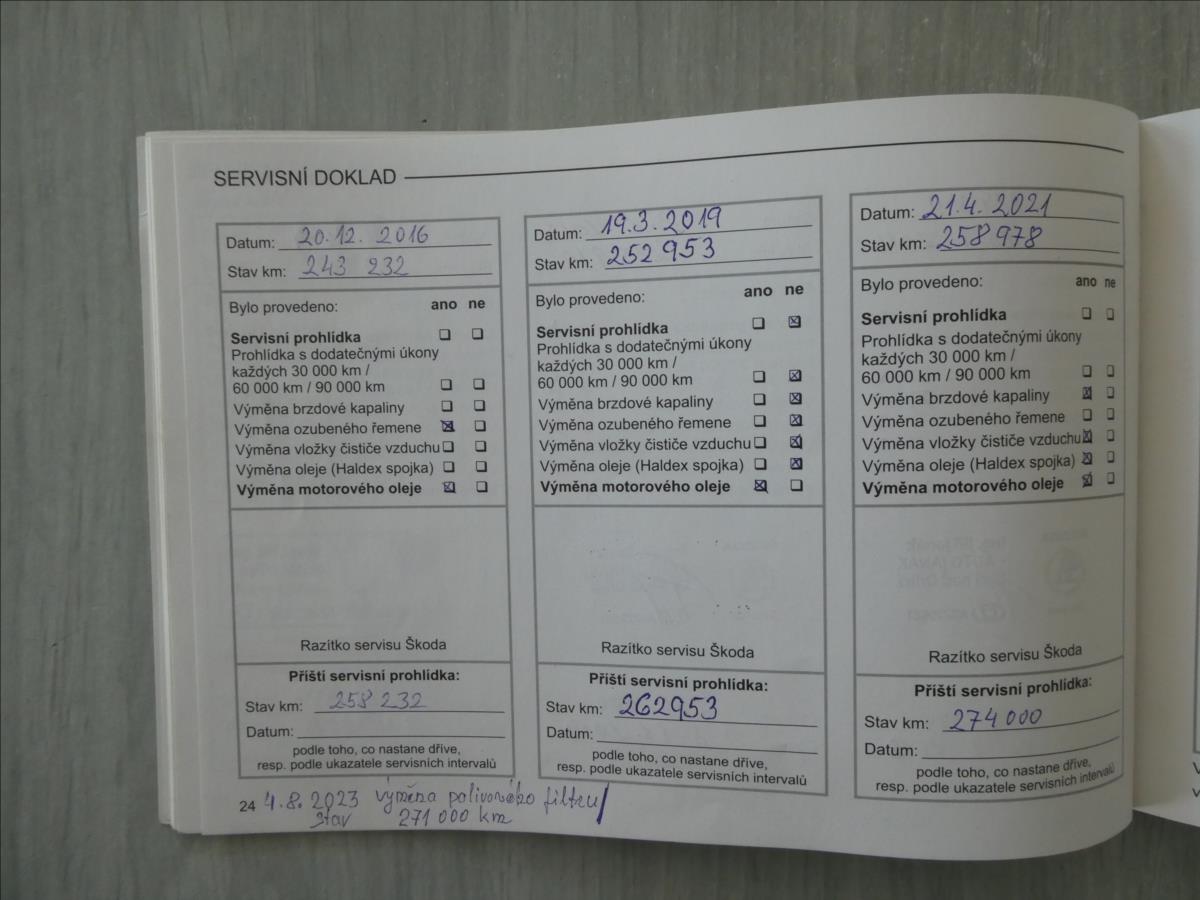 SERVISNÍ DOKLAD
Datum: 20.12. 2016
Stav km: 243 232
Bylo provedeno: ano ne
Servisní prohlídka
Prohlídka s dodatečnými úkony
každých 30 000 km /
60 000 km / 90 000 km
Výměna brzdové kapaliny
Výměna ozubeného řemene
Výměna vložky čističe vzduchu
Výměna oleje (Haldex spojka)
Výměna motorového oleje
Razítko servisu Škoda
Příští servisní prohlídka:
Stav km: 258 232
Datum:
podle toho, co nastane dříve,
resp. podle ukazatele servisních intervalů
Datum: 19.3.2019
Stav km: 252 953
Bylo provedeno: ano ne
Servisní prohlídka
Prohlídka s dodatečnými úkony
každých 30 000 km /
60 000 km / 90 000 km
Výměna brzdové kapaliny
Výměna ozubeného řemene
Výměna vložky čističe vzduchu
Výměna oleje (Haldex spojka)
Výměna motorového oleje
Razítko servisu Škoda
Příští servisní prohlídka:
Stav km: 262953
Datum:
podle toho, co nastane dříve,
resp. podle ukazatele servisních intervalů
Datum: 21.4. 2021
Stav km: 258 978
Bylo provedeno: ano ne
Servisní prohlídka
Prohlídka s dodatečnými úkony
každých 30 000 km /
60 000 km / 90 000 km
Výměna brzdové kapaliny
Výměna ozubeného řemene
Výměna vložky čističe vzduchu
Výměna oleje (Haldex spojka)
Výměna motorového oleje
Razítko servisu Škoda
Příští servisní prohlídka:
Stav km: 274 000
Datum:
podle toho, co nastane dříve,
resp. podle ukazatele servisních intervalů
24 4.8. 2023 výměna palivového filtru
stav 271 000 km